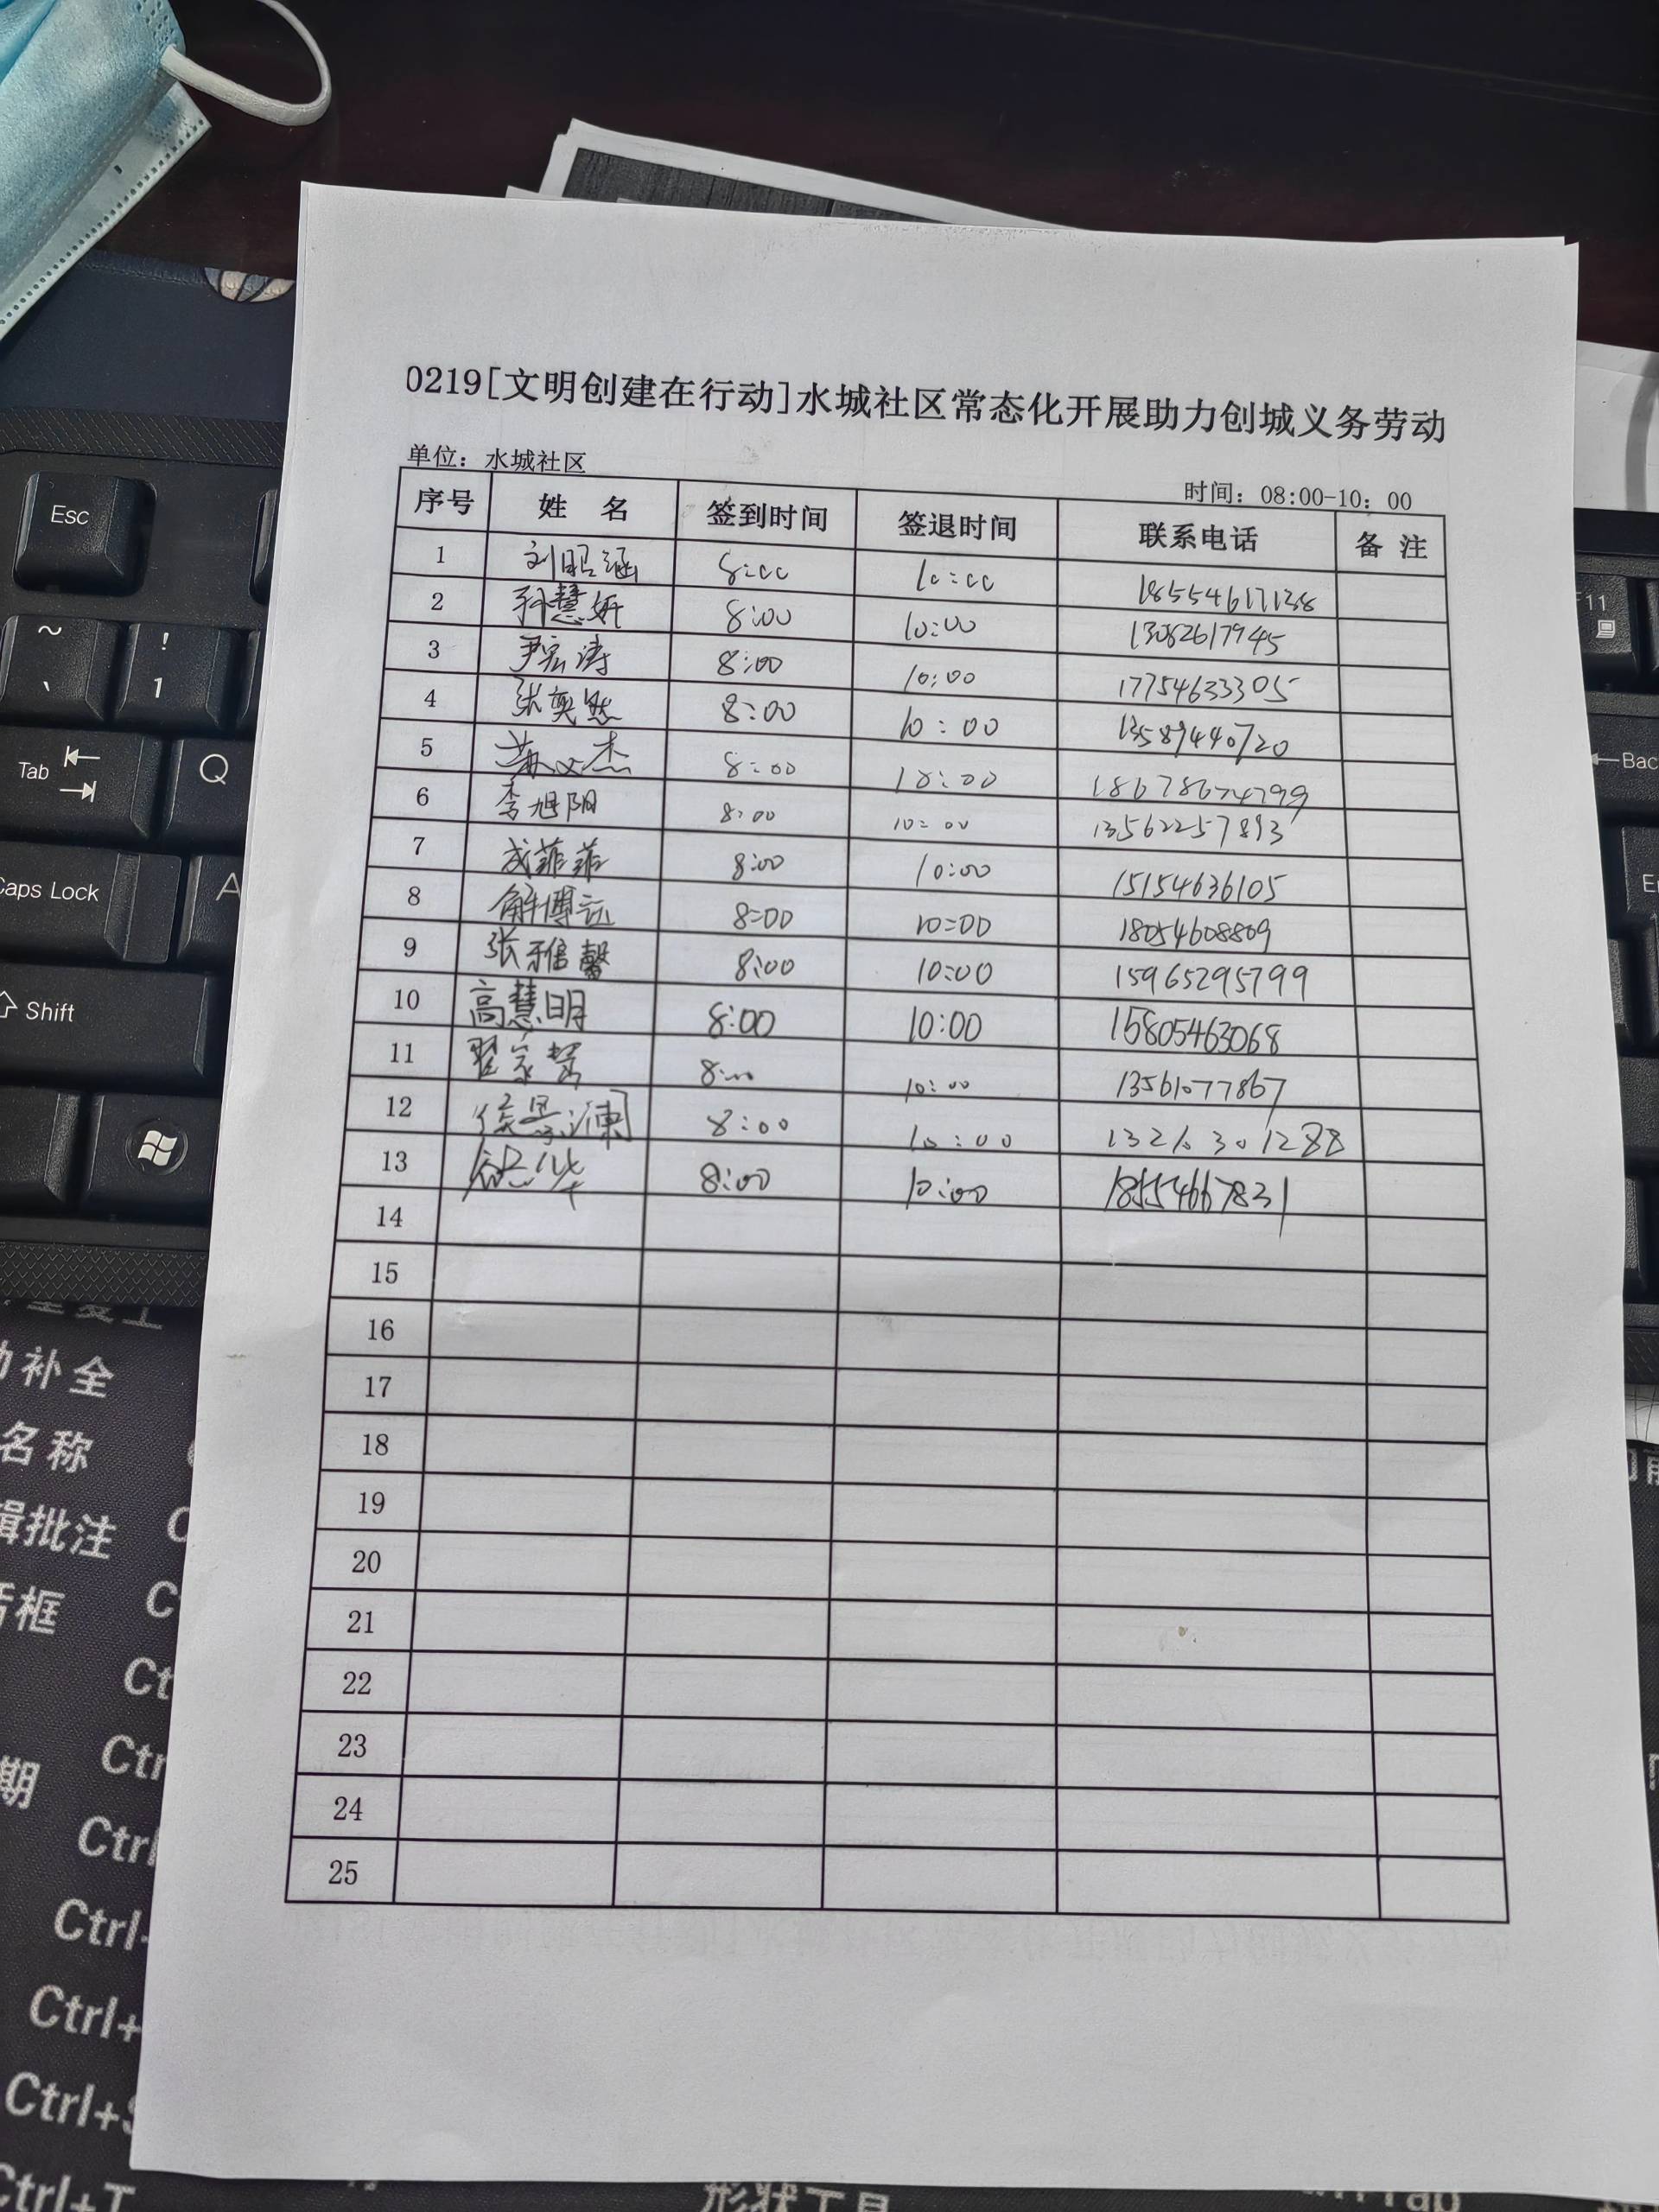 0219[文明创建在行动]水城社区常态化开展助力创城义务劳动
单位：水城社区
时间：08:00-10：00
序号 姓 名 签到时间 签退时间 联系电话 备 注
1 刘昭涵 8:00 10:00 18554617138
2 孙慧妍 8:00 10:00 13082617945
3 尹宏涛 8:00 10:00 17754633305
4 张奕然 8:00 10:00 13589440720
5 苏文杰 8:00 10:00 18678674799
6 李旭阳 8:00 10:00 13562257893
7 成菲菲 8:00 10:00 15154636105
8 解博远 8:00 10:00 18054608809
9 张雅馨 8:00 10:00 15965295799
10 高慧明 8:00 10:00 15805463068
11 翟家慧 8:00 10:00 13561077867
12 徐景澜 8:00 10:00 13276301288
13 8:00 10:00 18554667831
14
15
16
17
18
19
20
21
22
23
24
25
Esc
~
、
!
1
Tab
Q
Caps Lock
A
Shift
F11
Bac
动补全
名称
辑批注
框
期
Ct
Ctr
Ctrl
Ctrl-
Ctrl+
Ctrl+S
Ctrl+T
形状工具